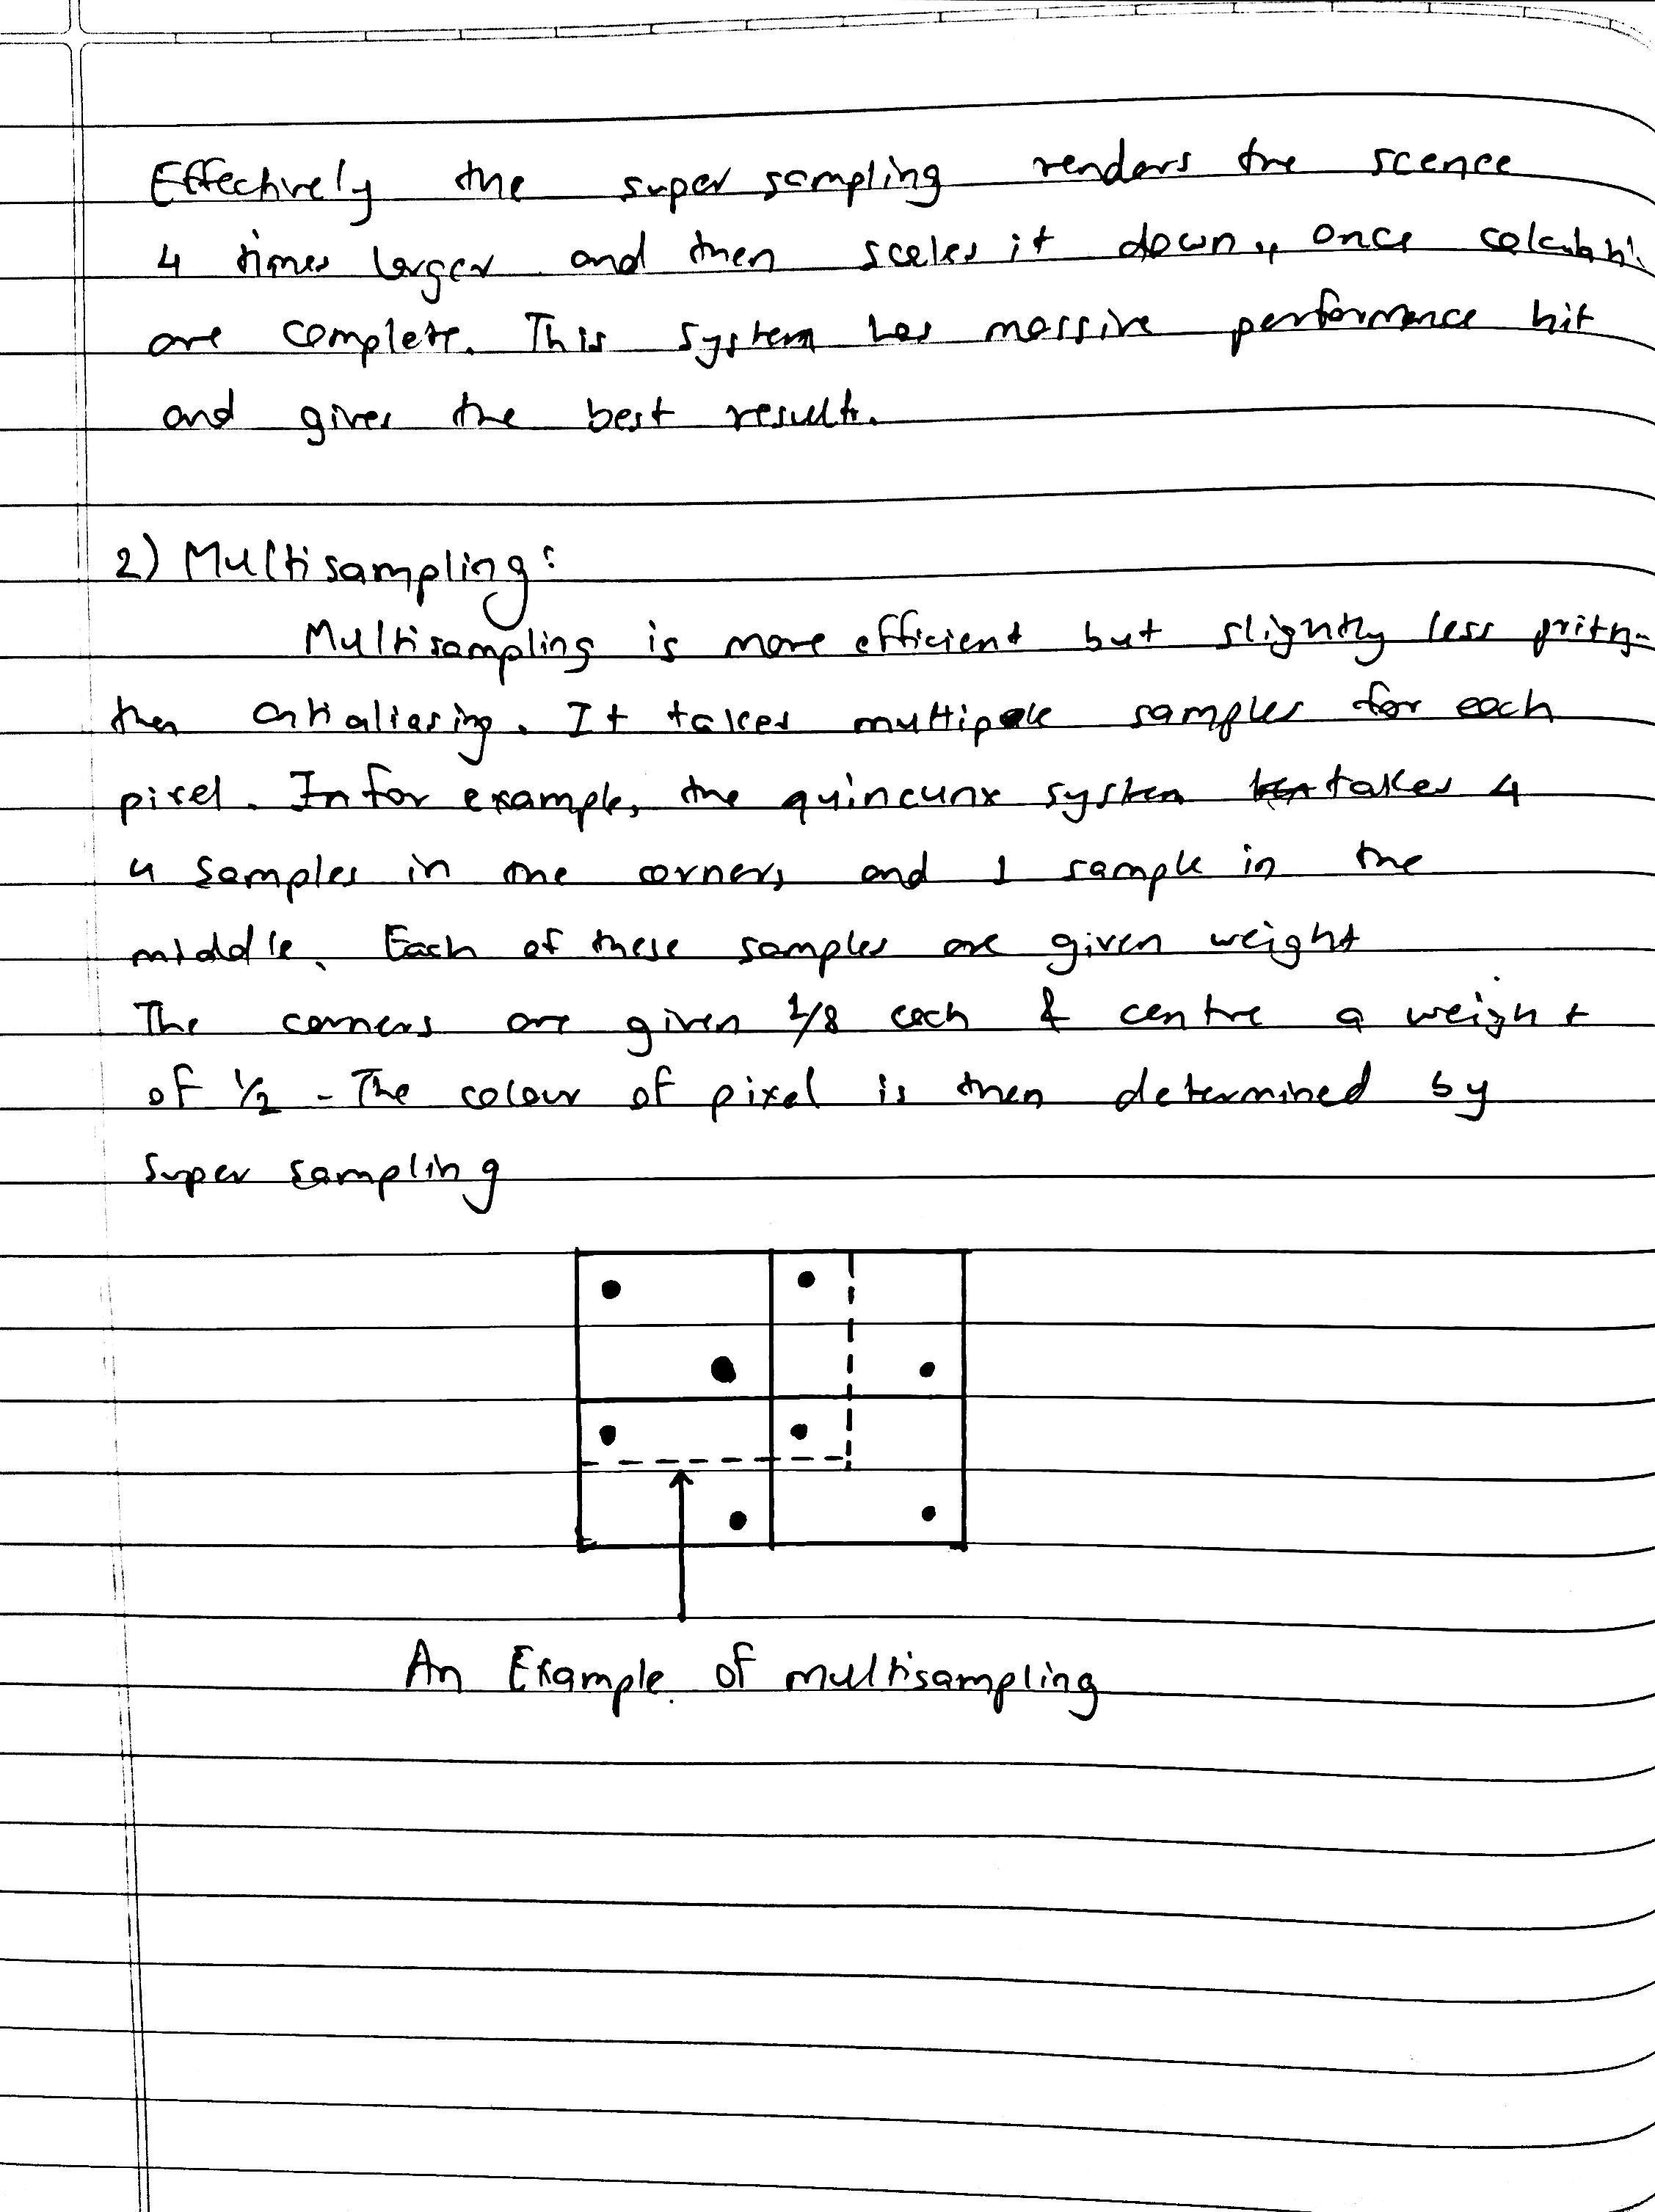 Effectively the super sampling renders the scence
4 times larger and then scales it down, once
are complete. This system has massive performance hit
and gives the best result.
2) Multisampling:
Multisampling is more efficient but slightly less
then antialiasing. It takes multiple samples for each
pixel. In for example, the quincunx system takes 4
4 samples in the corners and 1 sample in the
middle. Each of these samples are given weight
The corners are given 1/8 each & centre a weight
of 1/2 - The colour of pixel is then determined by
super sampling
An Example of multisampling